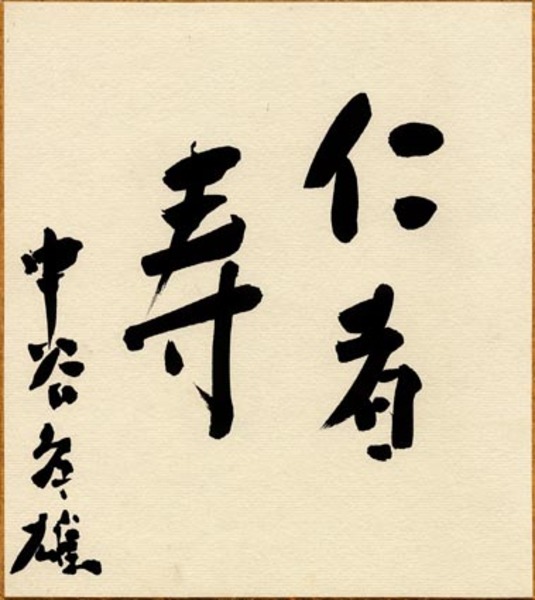 仁者
寿
中谷孝雄